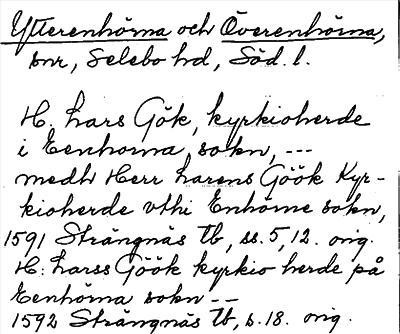 Ytterenhörna och Överenhörna,
snr, Selebo hd, Söd. l.
H. Lars Gök, kyrkioherde
i Eenhorna sokn, ---
medh Herr Larens Göök Kyr-
kioherde vthi Enhörne sokn,
1591 Strängnäs tb, ss. 5, 12. orig.
H: Larss Göök kyrkio herde på
Eenhörna sokn --
1592 Strängnäs tb, s. 18. orig.